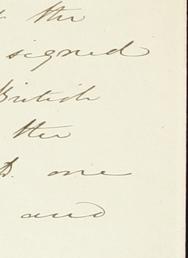 the
signed
British
the
one
and